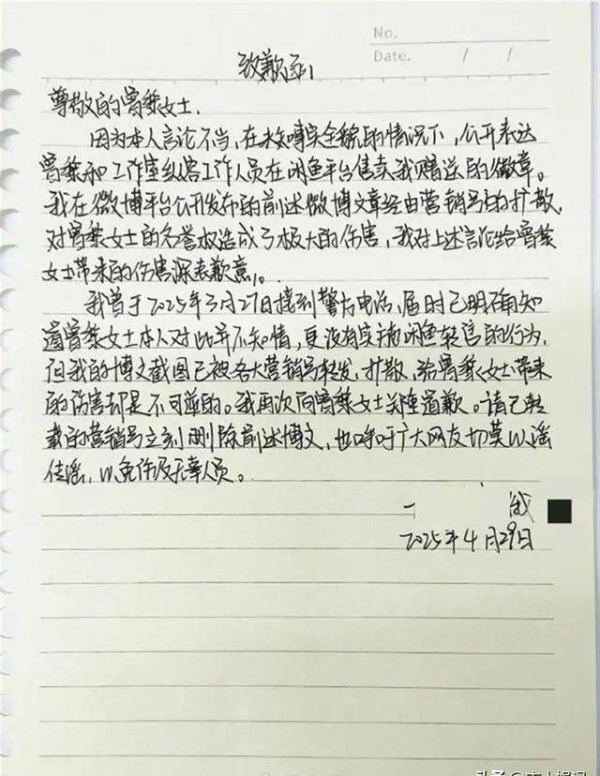 No.
Date. / /
致歉函
尊敬的曾黎女士.
因为本人言论不当,在未核实全貌的情况下,公开表达
曾黎和工作室纵容工作人员在闲鱼平台售卖我赠送的徽章。
我在微博平台公开发布的前述微博文章经由营销号的扩散,
对曾黎女士的名誉权造成了极大的伤害,我对上述言论给曾黎
女士带来的伤害深表歉意。
我曾于2025年3月27日接到警方电话,届时已明确知
道曾黎女士本人对此并不知情,更没有实施闲鱼转售的行为,
但我的博文截图已被各大营销号转发,扩散,给曾黎女士带来
的伤害却是不可逆的。我再次向曾黎女士郑重道歉。请已转
载的营销号立刻删除前述博文,也呼吁广大网友切莫以谣
传谣,以免伤及无辜人员。
2025年4月29日
头条